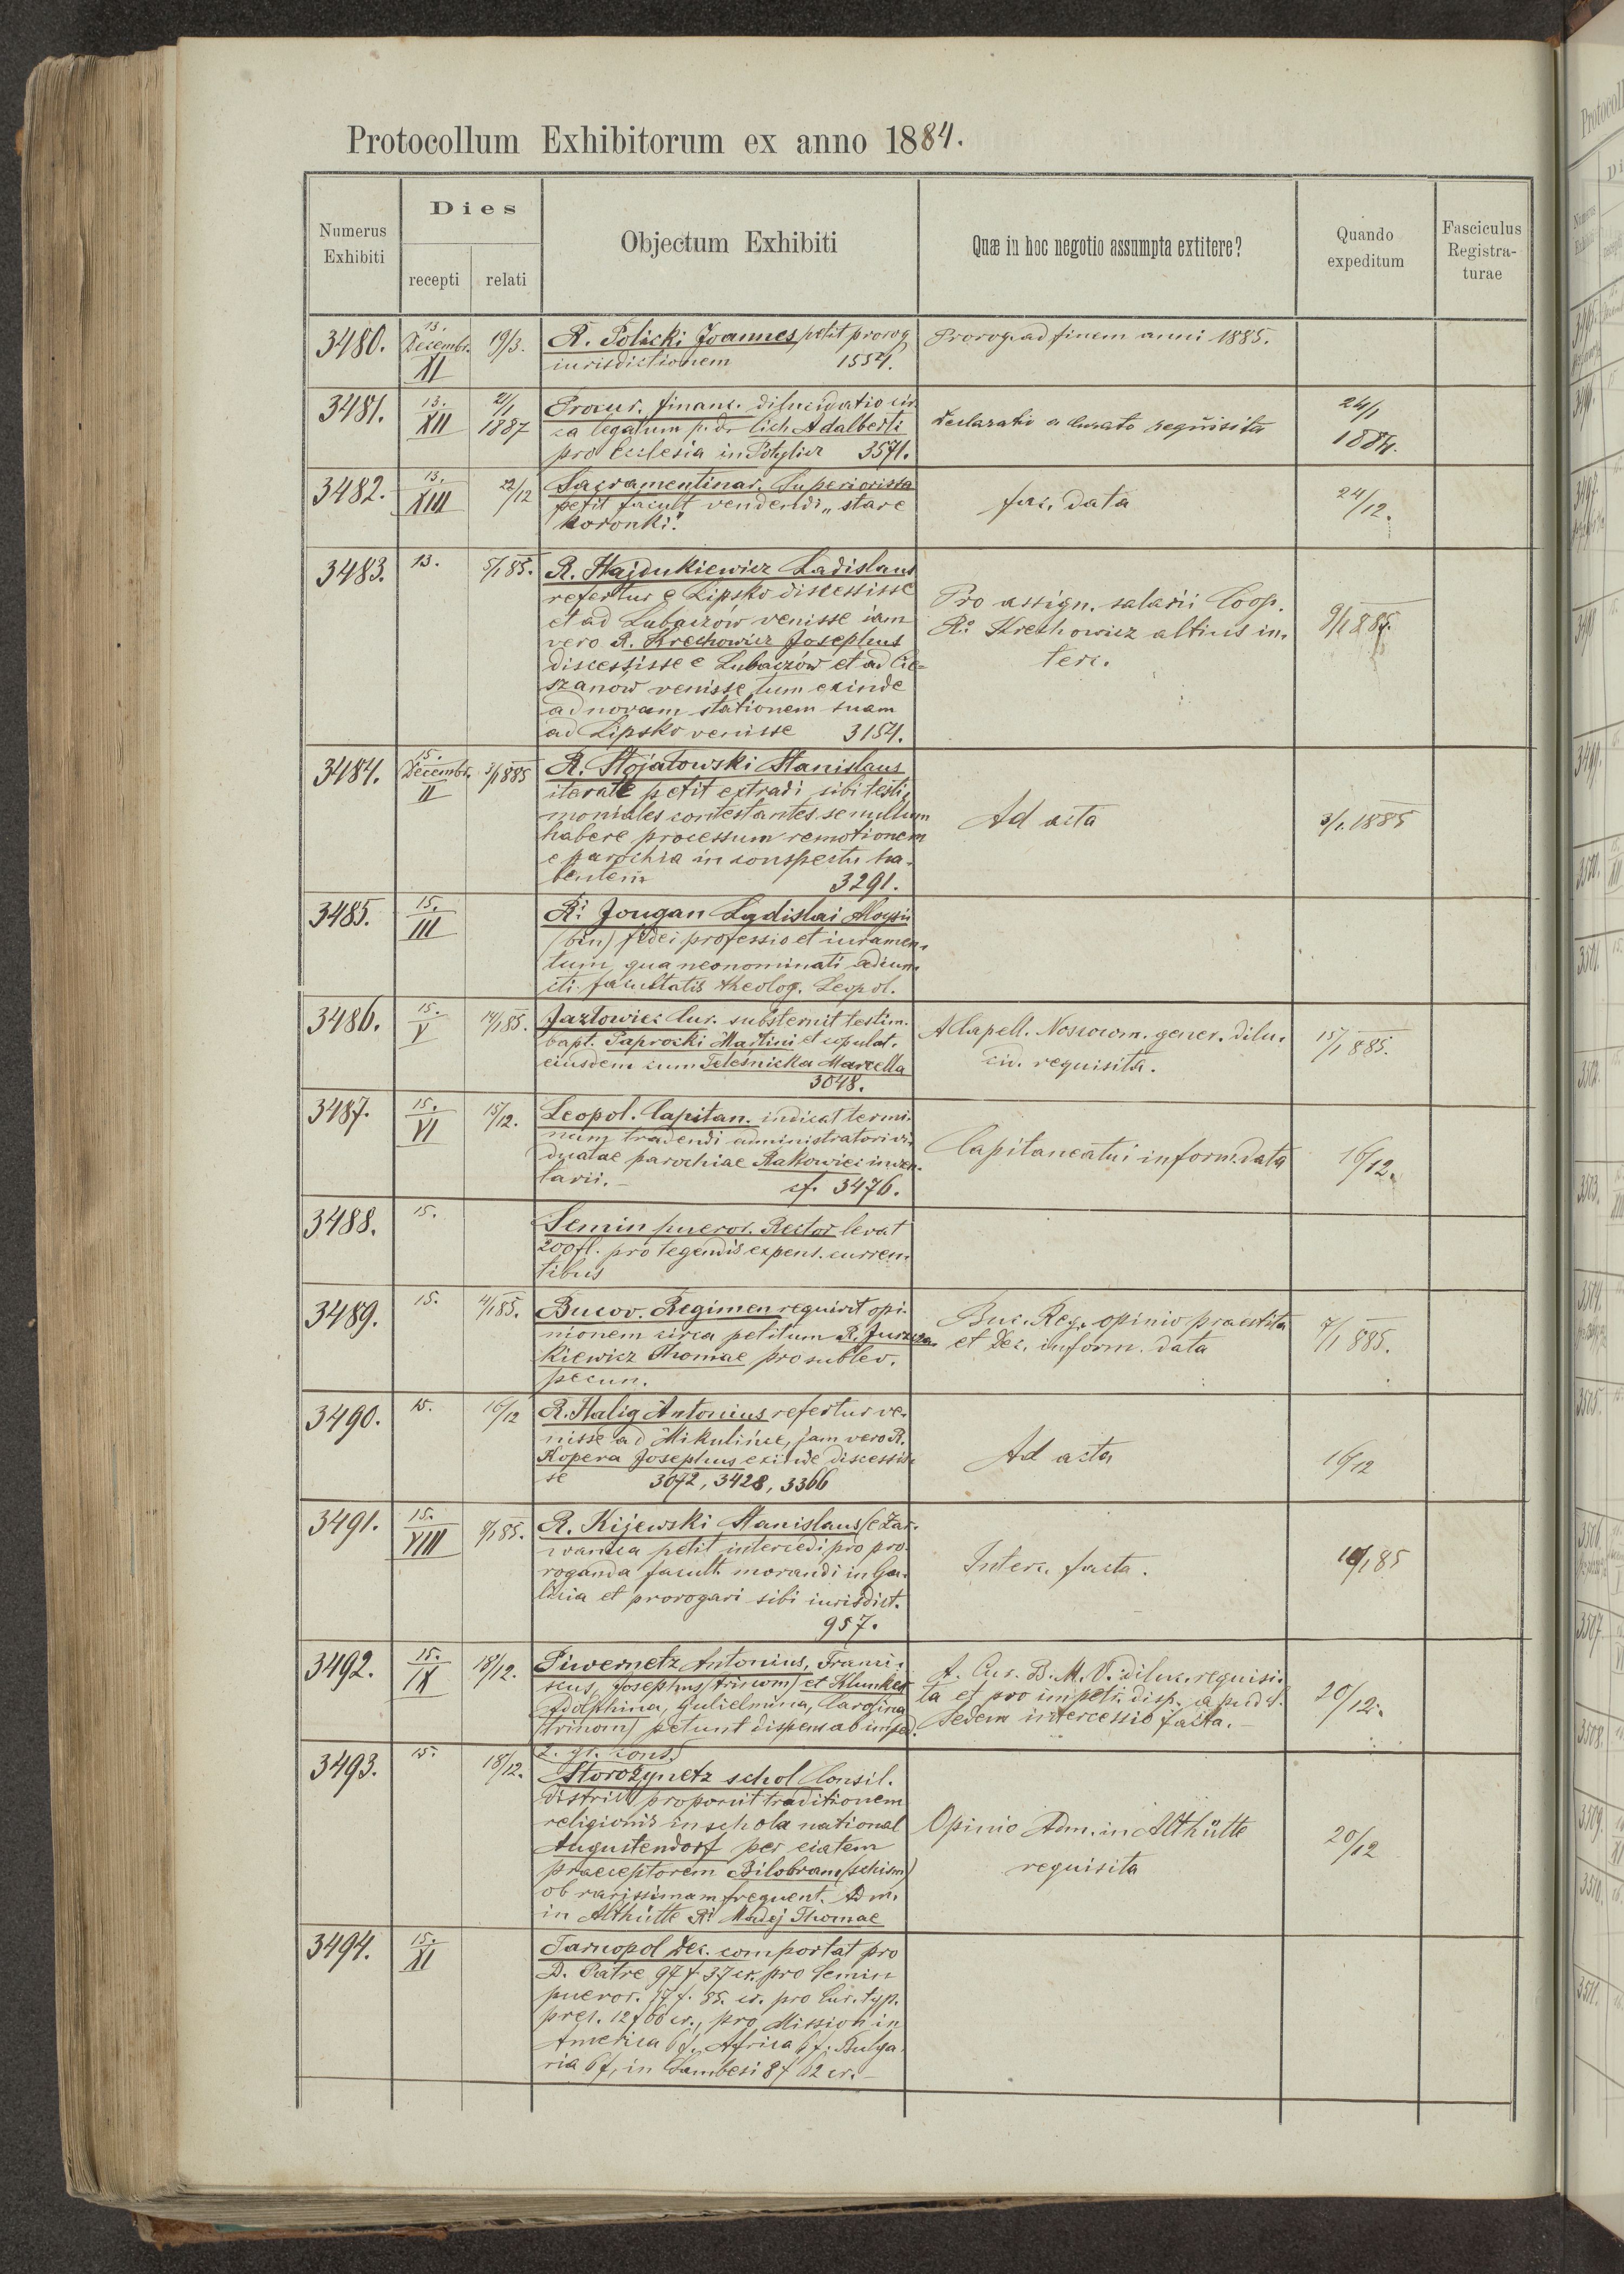 Protocollum Exhibitorum ex anno 1884.
Numerus Exhibiti
Dies
recepti
relati
Objectum Exhibiti
Quæ in hoc negotio assumpta extitere?
Quando expeditum
Fasciculus Registraturae
3480.
13.
Decembr.
XI
19/3.
R. Polieki Joannes petit prorog.
iurisdictionem 1554.
Prorog. ad finem anni 1885.
3481.
13.
XII
21/1
1887
Procur. finanz. dilucidatio cir
ca legatum p. dr Lich Adalberti
pro Ecclesia in Potylicz 3571.
Declaratio a Curato requisita
24/1
1884.
3482.
13.
XIII
22/12
Sacramentinar. Superiorissa
petit facult vendendi „stare
koronki."
fac. data
24/12.
3483.
13.
5/1 85.
R. Hajdukiewicz Ladislaus
refertur e Lipsko discessisse
et ad Lubaczów venisse iam
vero R. Krechowicz Josephus
discessisse e Lubaczów et ad Cie=
szanow venisse, tum exinde
ad novam stationem suam
ad Lipsko venisse 3154.
Pro assign. salarii Coop.
Ri Krechowicz altius in-
terc.
9/1 885.
3484.
15.
Decembr.
II
3/1 885
R. Stojatowski Stanislaus
iterate petit extradi sibi testi-
moniales contestantes se nullum
habere processum remotionem
e parochia in conspectu ha-
bentem 3291.
Ad acta
3/1. 1885
3485.
15.
III
Ri Jougan Ladislai Aloysii
(bin) fidei professio et iuramen-
tum, qua neonominati adiun
cti facultatis theolog. Leopol.
3486.
15.
V
14/1 85.
Jazłowiec Cur. substernit testim.
bapt. Paprocki Martini et copulat.
eiusdem cum Teleśnicka Marcella
3048.
A Capell. Nosocom. gener. dilu-
cid. requisita.
15/1 885.
3487.
15.
VI
15/12.
Leopol. Capitan. indicat termi-
num tradendi administratori vi-
duatae parochiae Rakowiec inven-
tarii.- cf. 3476.
Capitaneatui inform. data
16/12.
3488.
15.
Semin pueror. Rector levat
200 fl. pro tegendis expens. curren-
tibus
3489.
15.
4/1 85.
Bucov. Regimen requirit opi-
nionem circa petitum R. Jurcza
kiewicz Thomae pro sublev.
pecun.
Buc. Reg. opinio praestita
et Dec. inform. data
7/1 885.
3490.
15.
16/12
R. Halig Antonius refertur ve-
nisse ad Mikulińce, jam vero R.
Kopera Josephus exinde discessis-
se 3072, 3428, 3366
Ad acta
16/12
3491.
15.
VIII
8/1 85.
R. Kijewski Stanislaus (e Zar-
wanica petit intercedi pro pro-
roganda facult. morandi in Ga-
licia et prorogari sibi iurisdict.
957.
Interc. facta.
10/1 85
3492.
15.
IX
18/12.
Piwernetz Antonius, Franci-
scus, Josephus (trinom) et Klunker
Adolphina, Gulielmina, Carolina
(trinom) petunt dispens ab imped.
2. gr. cons.
A. Cur. B. M. V. diluc. requisi-
ta et pro impetr. disp. apud S.
Sedem intercessio facta.-
20/12.
3493.
15.
18/12.
Storożynetz schol Consil.
district proponit traditionem
religionis in schola national
Augustendorf per eiatem
praeceptorem Bilobram (schism)
ob rarissimam frequent. Adm.
in Althütte Ri Madej Thomae
Opinio Adm. in Althütte
requisita
20/12
3494.
15.
XI
Tarnopol Dec. comportat pro
D. Patre 97 f. 37 cr. pro Semin
pueror. 17 f. 85. cr. pro Cur. typ.
pres. 12 f 60 cr., pro Mission in
America 6 f. Africa 6 f. Bulga-
ria 6 f, in Sambesi 8 f 62 cr.-